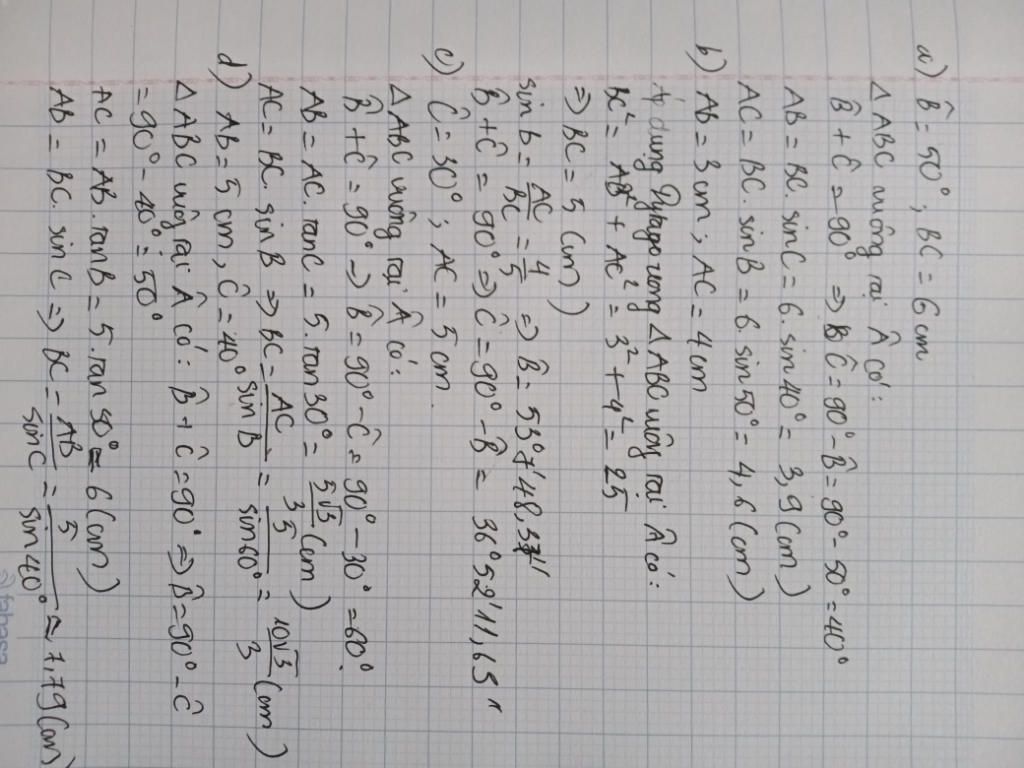 a) B̂ = 50°; BC = 6 cm
Δ ABC vuông tại Â có:
B̂ + Ĉ = 90° ⇒ Ĉ = 90° - B̂ = 90° - 50° = 40°
AB = BC. sinC = 6. sin 40° = 3,9 (cm)
AC = BC. sinB = 6. sin 50° = 4,6 (cm)
b) AB = 3 cm; AC = 4 cm
Áp dụng Pytago trong Δ ABC vuông tại Â có:
BC² = AB² + AC² = 3² + 4² = 25
⇒ BC = 5 (cm)
sin b = AC/BC = 4/5 ⇒ B̂ = 53°7'48,37''
B̂ + Ĉ = 90° ⇒ Ĉ = 90° - B̂ = 36°52'11,63''
c) Ĉ = 30°; AC = 5 cm.
Δ ABC vuông tại Â có:
B̂ + Ĉ = 90° ⇒ B̂ = 90° - Ĉ = 90° - 30° = 60°.
AB = AC. tanC = 5. tan 30° = 5√3/3 (cm)
AC = BC. sin B ⇒ BC = AC/sin B = 5/sin 60° = 10√3/3 (cm)
d) AB = 5 cm, Ĉ = 40°
Δ ABC vuông tại Â có: B̂ + Ĉ = 90° ⇒ B̂ = 90° - Ĉ
= 90° - 40° = 50°
AC = AB. tanB = 5. tan 50° = 6 (cm)
AB = BC. sin C ⇒ BC = AB/sin C = 5/sin 40° ≈ 7,79 (cm)
fahasa